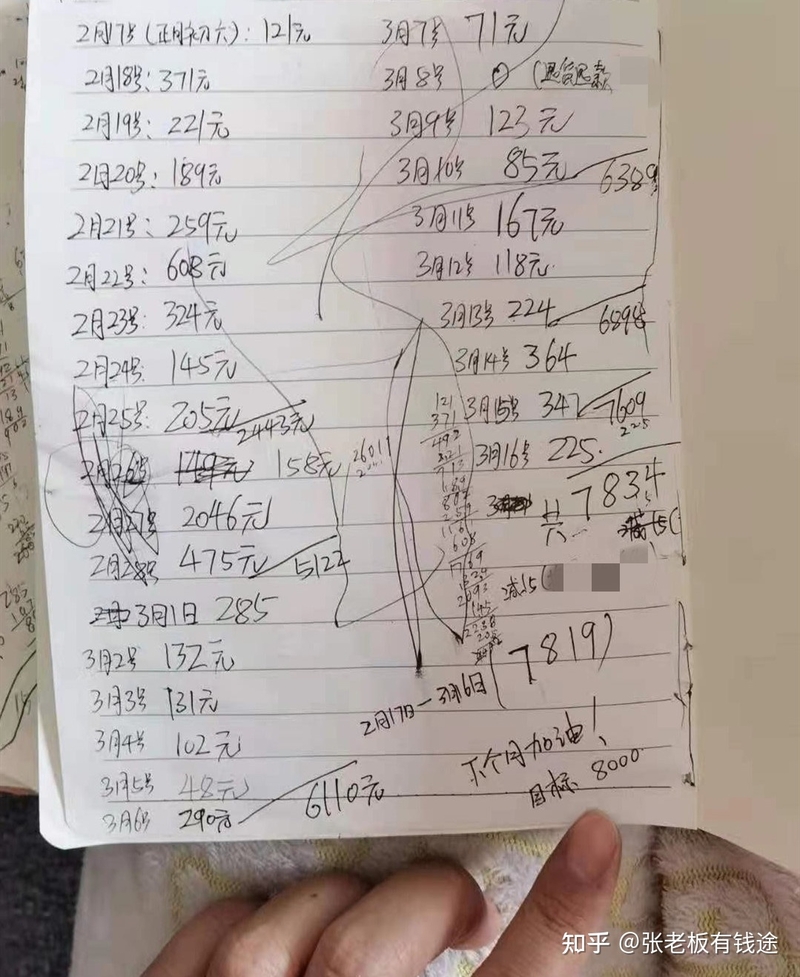 2月17号(正月初六): 121元
2月18号: 371元
2月19号: 221元
2月20号: 189元
2月21号: 259元
2月22号: 608元
2月23号: 324元
2月24号: 145元
2月25号: 205元 2443元
2月26号 149元 158元
2月27号 2046元
2月28号 475元 5122
3月1日 285
3月2号 132元
3月3号 131元
3月4号 102元
3月5号 48元
3月6号 290元 6110元
3月7号 71元
3月8号 0 (退货退款
3月9号 123元
3月10号 85元 6389
3月11号 167元
3月12号 118元
3月13号 224 6898
3月14号 364
3月15号 347 7609
225
3月16号 225.
共 7834
六
减15
(7819)
2月17日—3月6日
下个月加油!
目标 8000
2601
121
371
492
221
713
189
259
608
324
145
知乎 @张老板有钱途